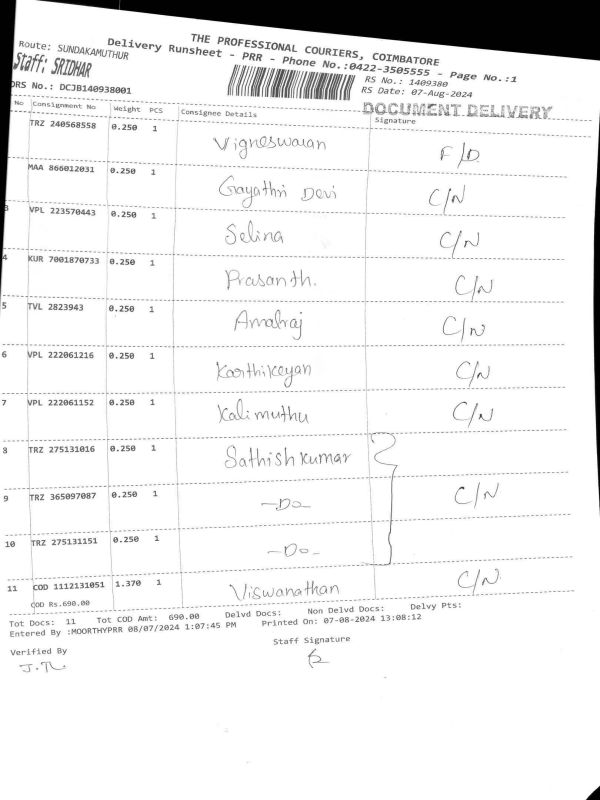 THE PROFESSIONAL COURIERS, COIMBATORE
Route: SUNDAKAMUTHUR Delivery Runsheet - PRR - Phone No.:0422-3505555 - Page No.:1
Staff: SRIDHAR RS No.: 1409380
DRS No.: DCJB140938001 RS Date: 07-Aug-2024
DOCUMENT DELIVERY
No Consignment No Weight PCS Consignee Details Signature
TRZ 240568558 0.250 1 Vigneswaran F/D
MAA 866012031 0.250 1 Gayathri Devi C/N
3 VPL 223570443 0.250 1 Selina C/N
4 KUR 7001870733 0.250 1 Prasanth. C/N
5 TVL 2823943 0.250 1 Amalraj C/N
6 VPL 222061216 0.250 1 Karthikeyan C/N
7 VPL 222061152 0.250 1 Kalimuthu C/N
8 TRZ 275131016 0.250 1 Sathish kumar
9 TRZ 365097087 0.250 1 —Do— C/N
10 TRZ 275131151 0.250 1 —Do—
11 COD 1112131051 1.370 1 Viswanathan C/N
COD Rs.690.00
Tot Docs: 11 Tot COD Amt: 690.00 Delvd Docs: Non Delvd Docs: Delvy Pts:
Entered By :MOORTHYPRR 08/07/2024 1:07:45 PM Printed On: 07-08-2024 13:08:12
Verified By Staff Signature